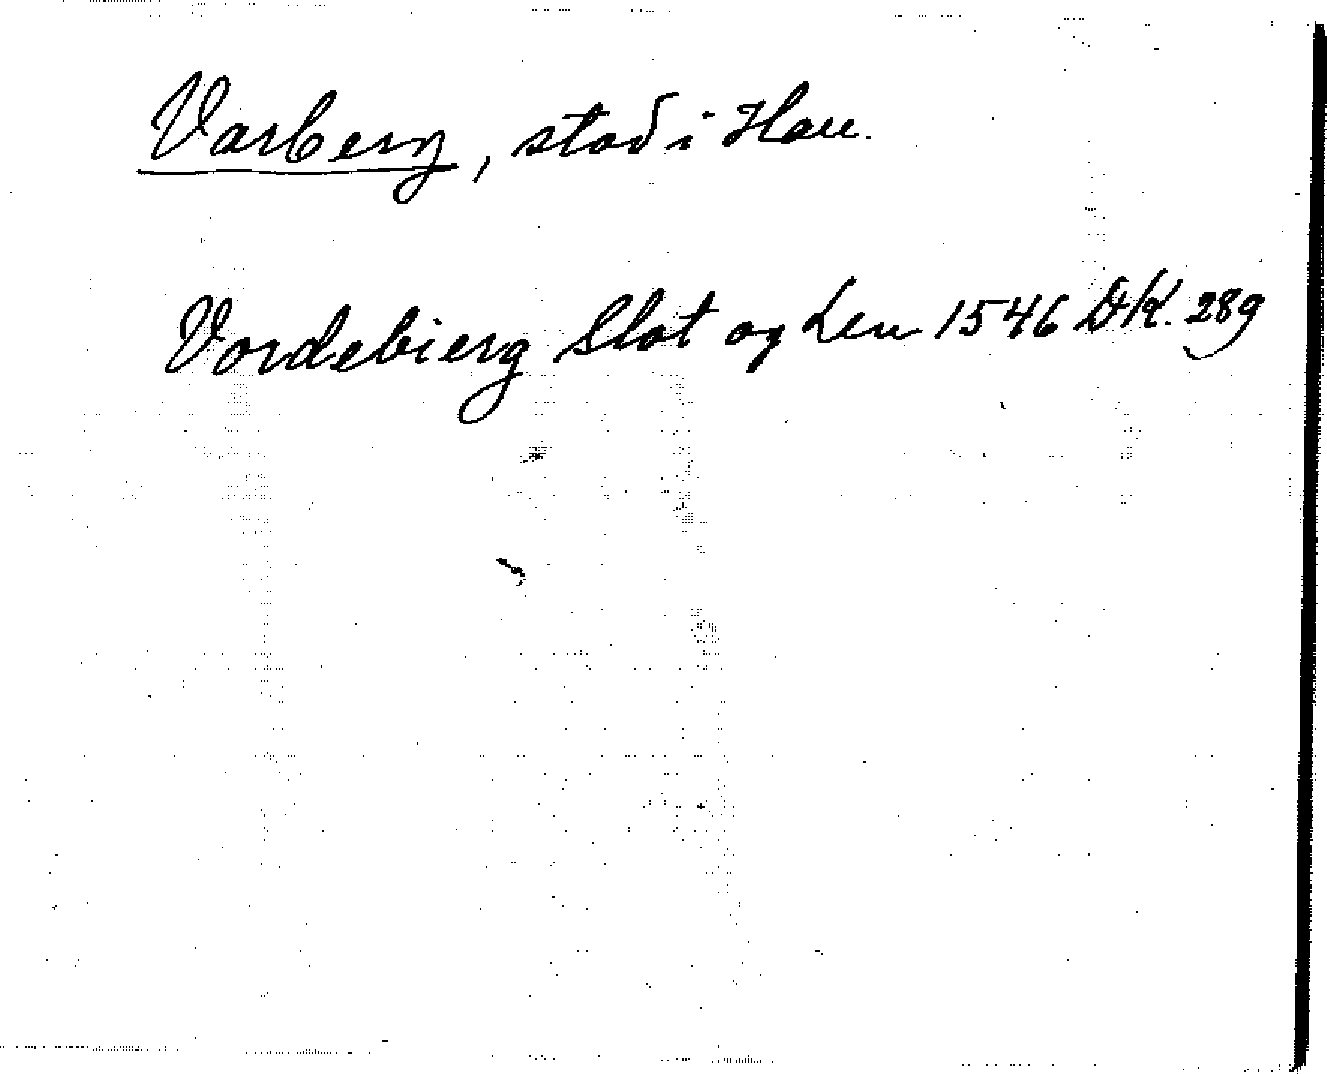 Varberg, stad i Hall.
Vardebierg Slot og Len 1546 DK. 289